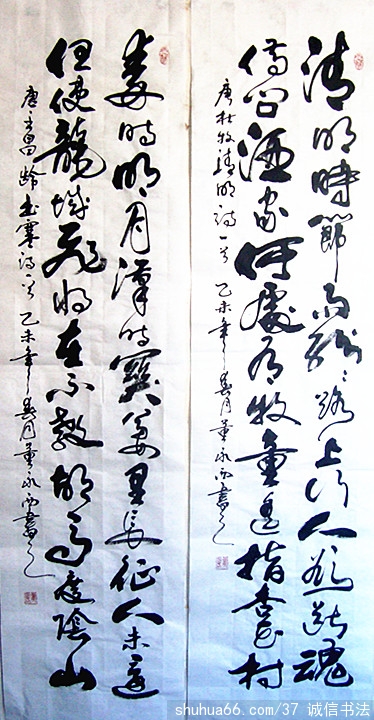 清明時節雨紛紛路上行人欲断魂
借问酒家何處有牧童遥指杏花村
唐杜牧清明詩一首 乙未年春月董永西書之
秦時明月漢時關萬里長征人未還
但使龍城飛將在不教胡馬度陰山
唐王昌齡出塞詩一首 乙未年春月董永西書之
shuhua66.com/37 诚信书法